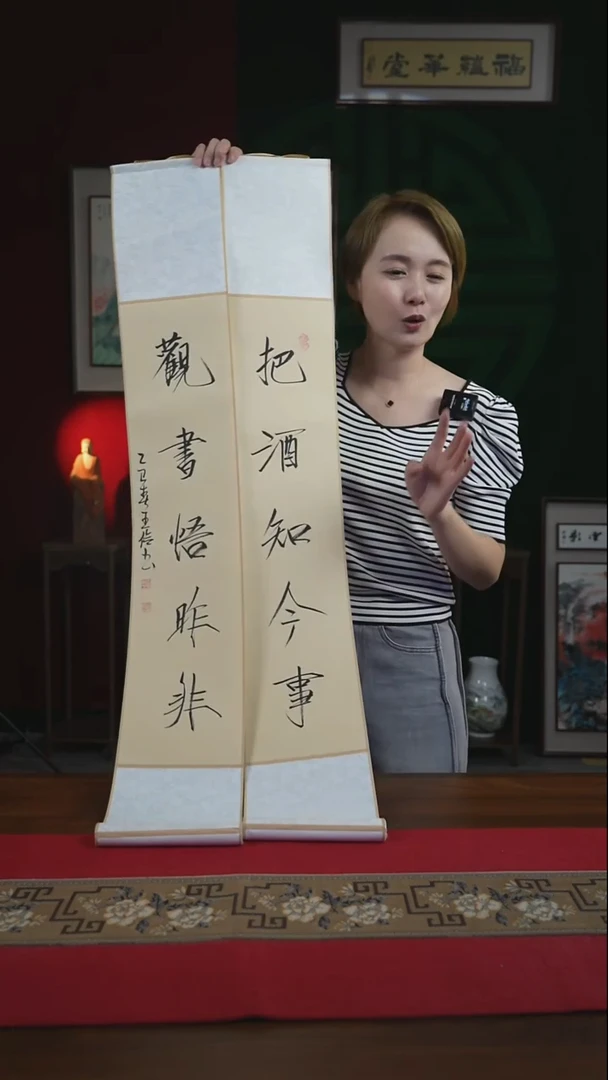 福蘊華堂
把酒知今事
觀書悟昨非
乙巳春王